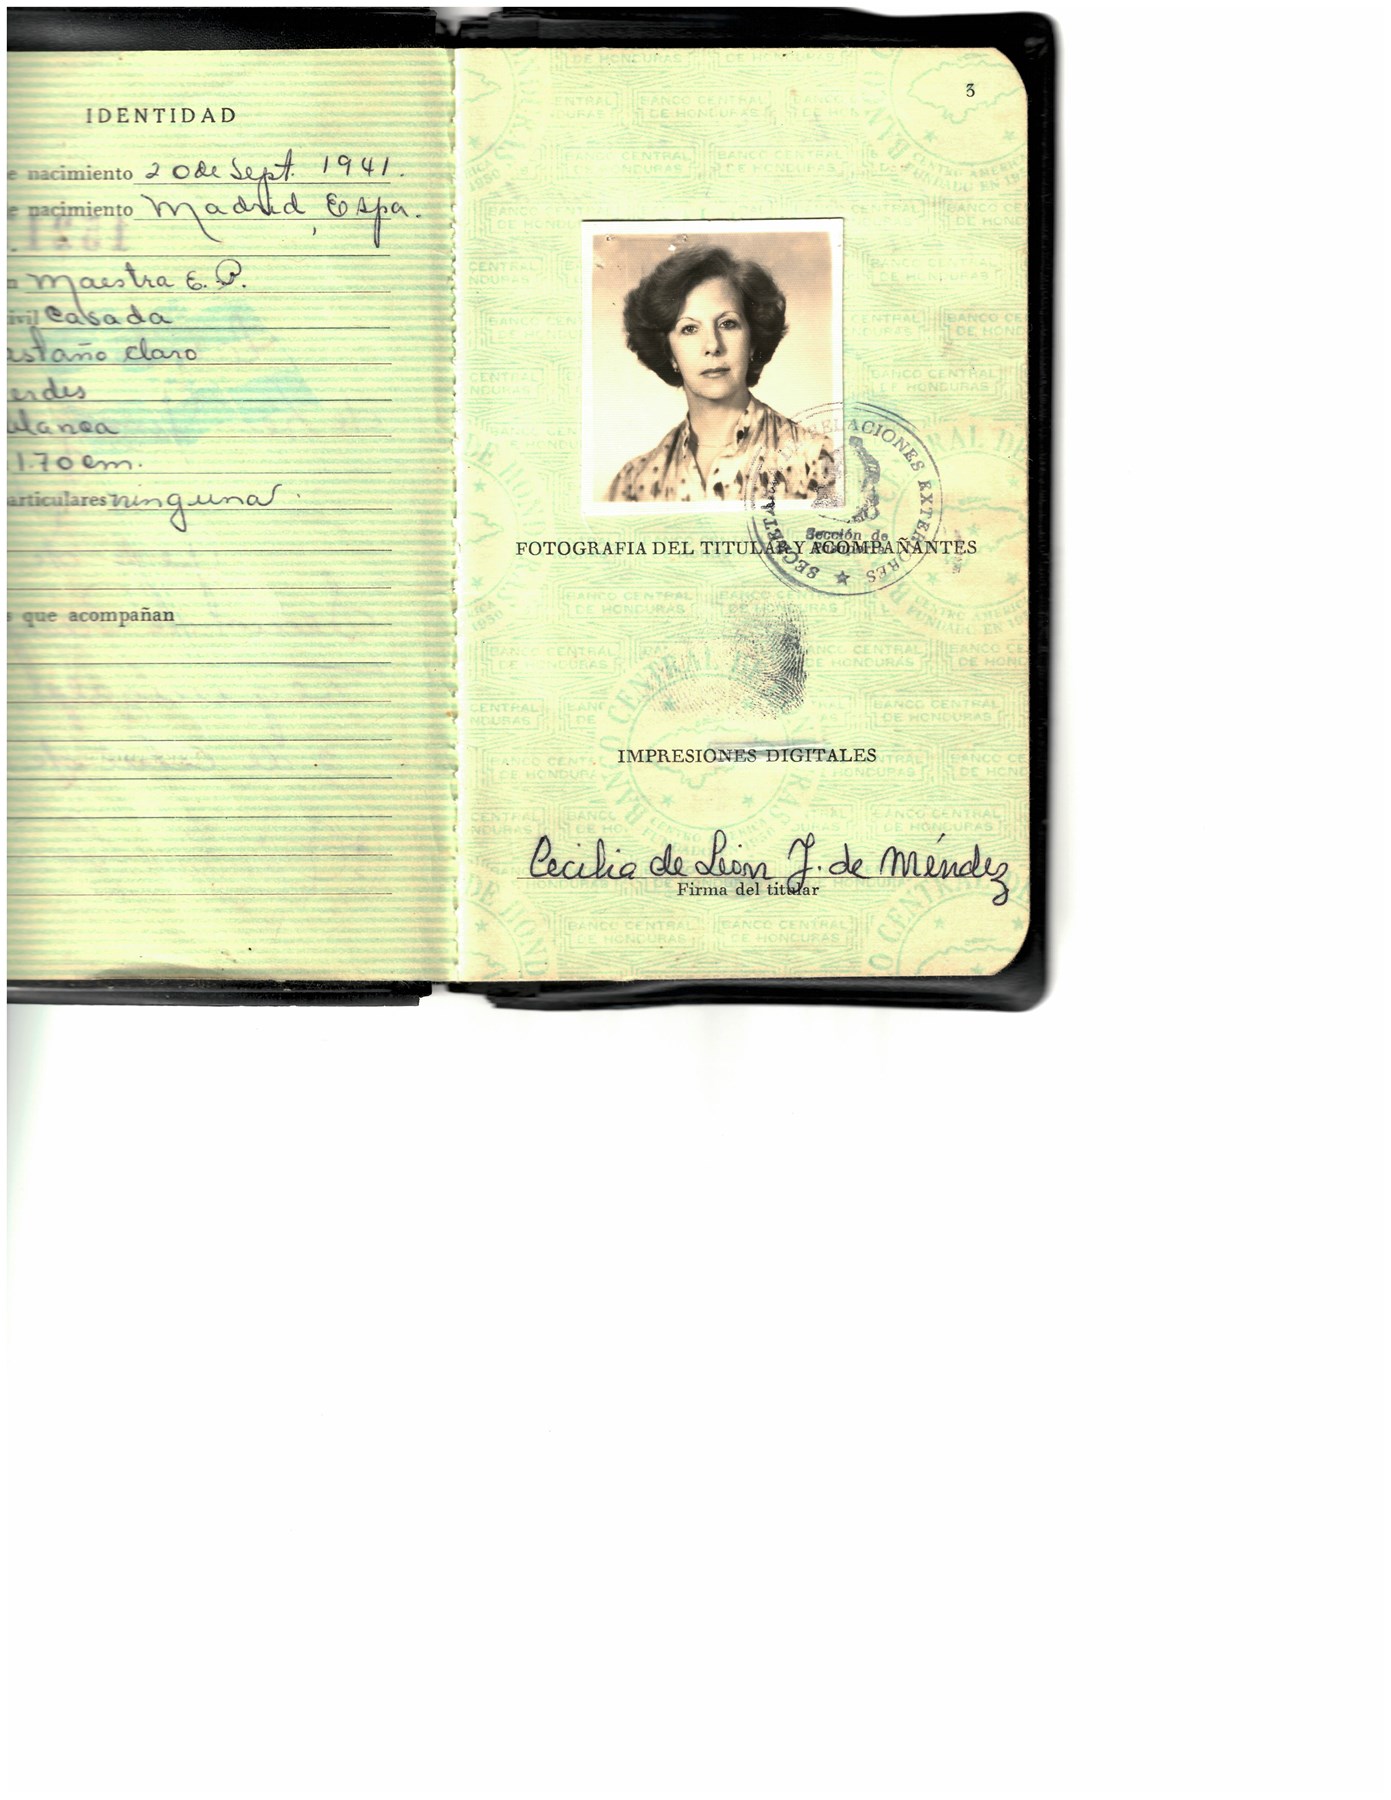 IDENTIDAD
nacimiento 20 de Sept. 1941.
nacimiento Madrid, Espa.
Maestra E. P.
ivil Casada
astaño claro
erdes
blanca
1.70 cm.
articulares ninguna
que acompañan
3
FOTOGRAFIA DEL TITULAR Y ACOMPAÑANTES
SECRETARIA DE RELACIONES EXTERIORES
Sección de
IMPRESIONES DIGITALES
Cecilia de León J. de Méndez
Firma del titular
BANCO CENTRAL
DE HONDURAS
BANCO CENTRAL DE HONDURAS
CENTRO AMERICA
FUNDADO EN 1950